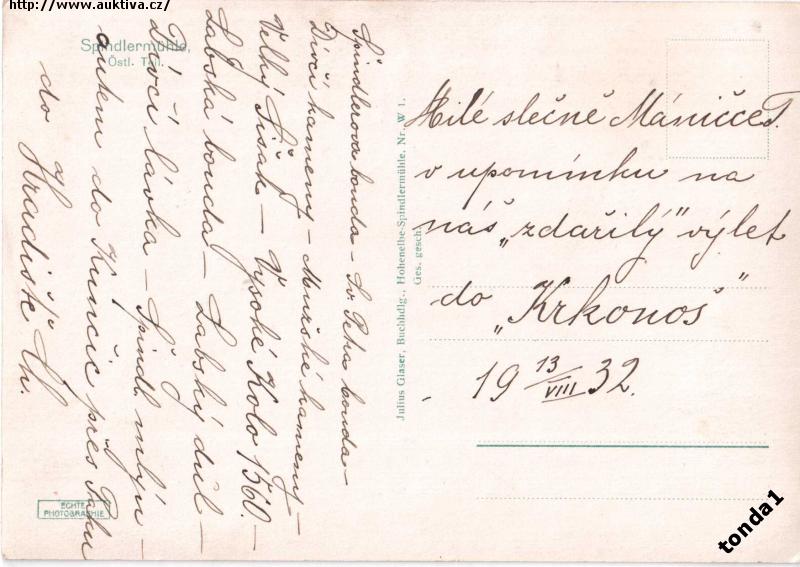 http://www.auktiva.cz/
Spindlermühle,
Östl. Teil.
Milé slečně Máničce T.
v upomínku na
náš „zdařilý" výlet
do „Krkonoš"
19 13/VIII 32.
Julius Glaser, Buchhdlg., Hohenelbe-Spindlermühle. Nr. W 1.
Ges. gesch.
Špindlerova bouda – Sv. Petra bouda –
Dívčí kameny – Mužské kameny –
Velký Šišak – Vysoké Kolo 1560. –
Labská bouda – Labský důl –
Dívčí lávka – Špindl. mlýn –
autem do Kunčic přes Paku
do Hradiště Mn.
ECHTE
PHOTOGRAPHIE
tonda1